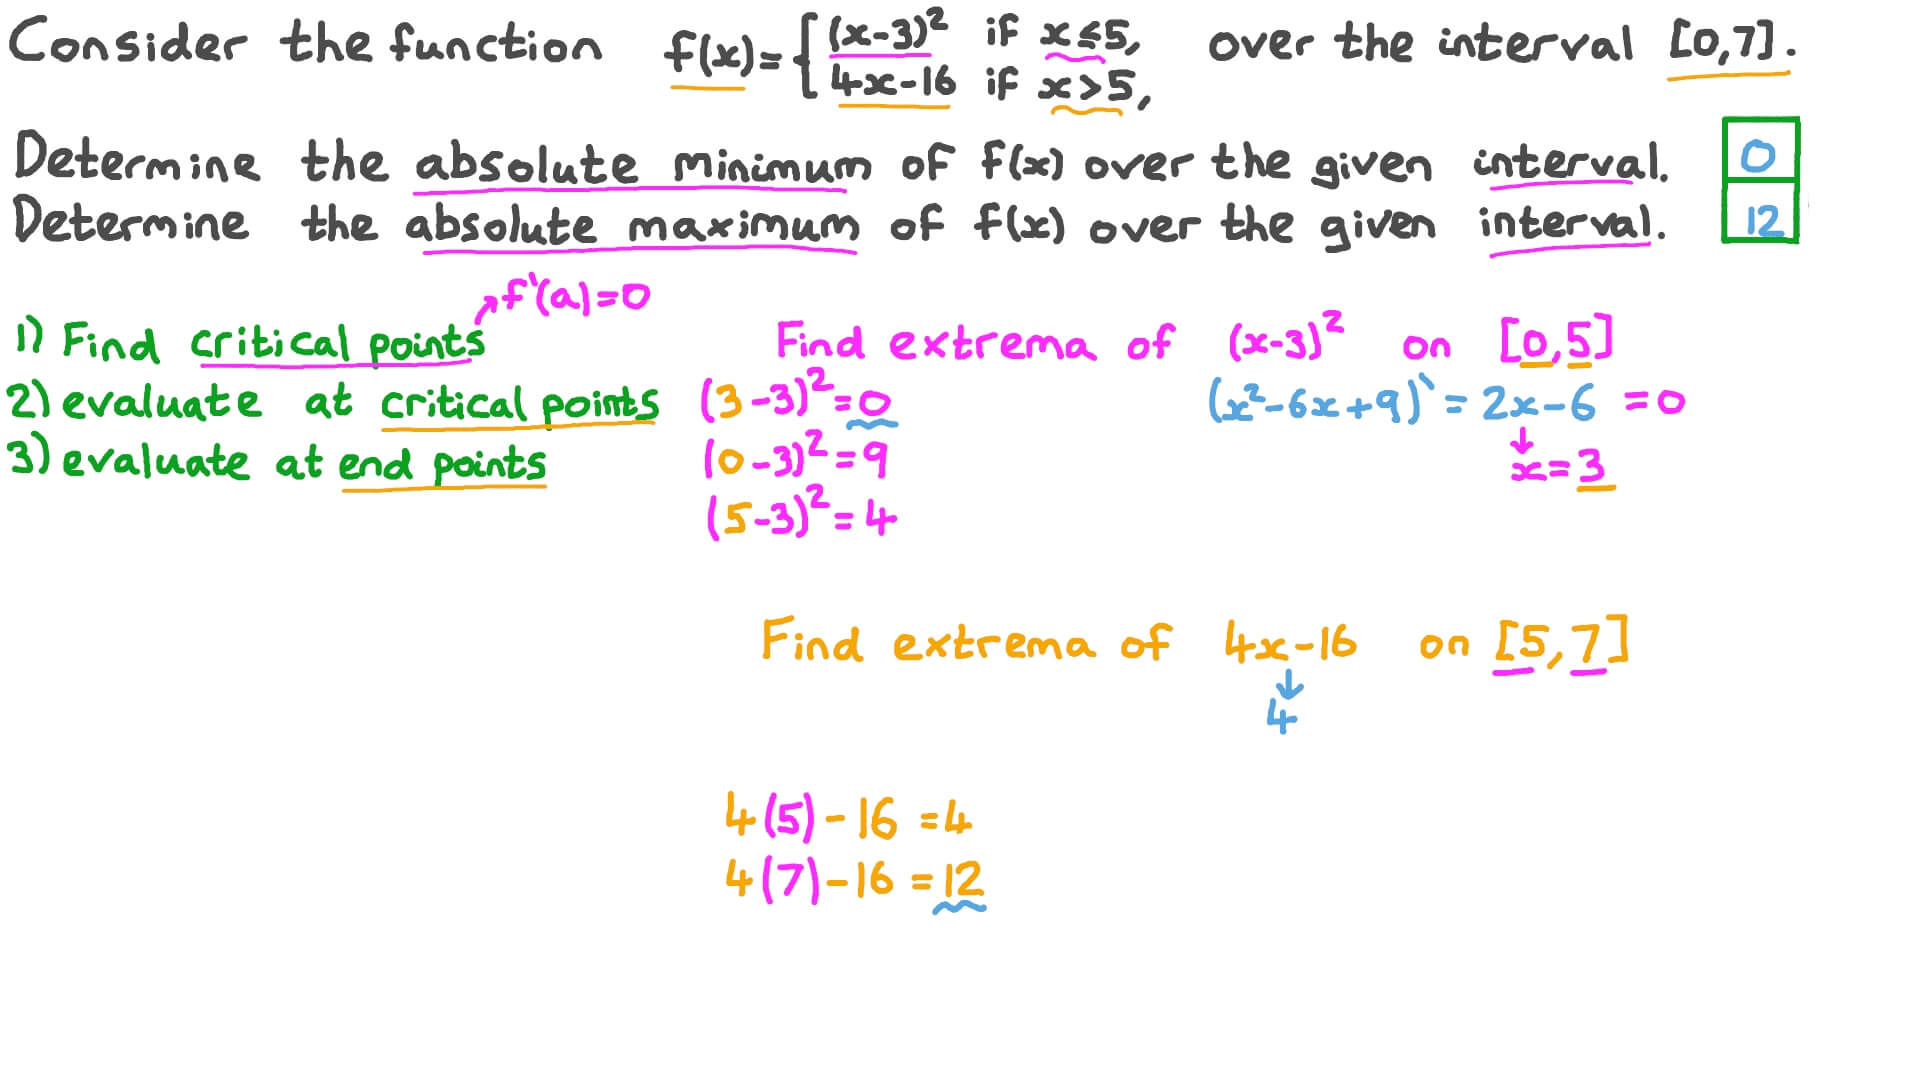 Consider the function f(x)={ (x-3)² if x≤5,
4x-16 if x>5, over the interval [0,7].
Determine the absolute minimum of f(x) over the given interval. 0
Determine the absolute maximum of f(x) over the given interval. 12
f'(a)=0
1) Find critical points
2) evaluate at critical points
3) evaluate at end points
Find extrema of (x-3)² on [0,5]
(x²-6x+9)' = 2x-6 =0
x=3
(3-3)²=0
(0-3)²=9
(5-3)²=4
Find extrema of 4x-16 on [5,7]
4
4(5)-16 =4
4(7)-16 =12